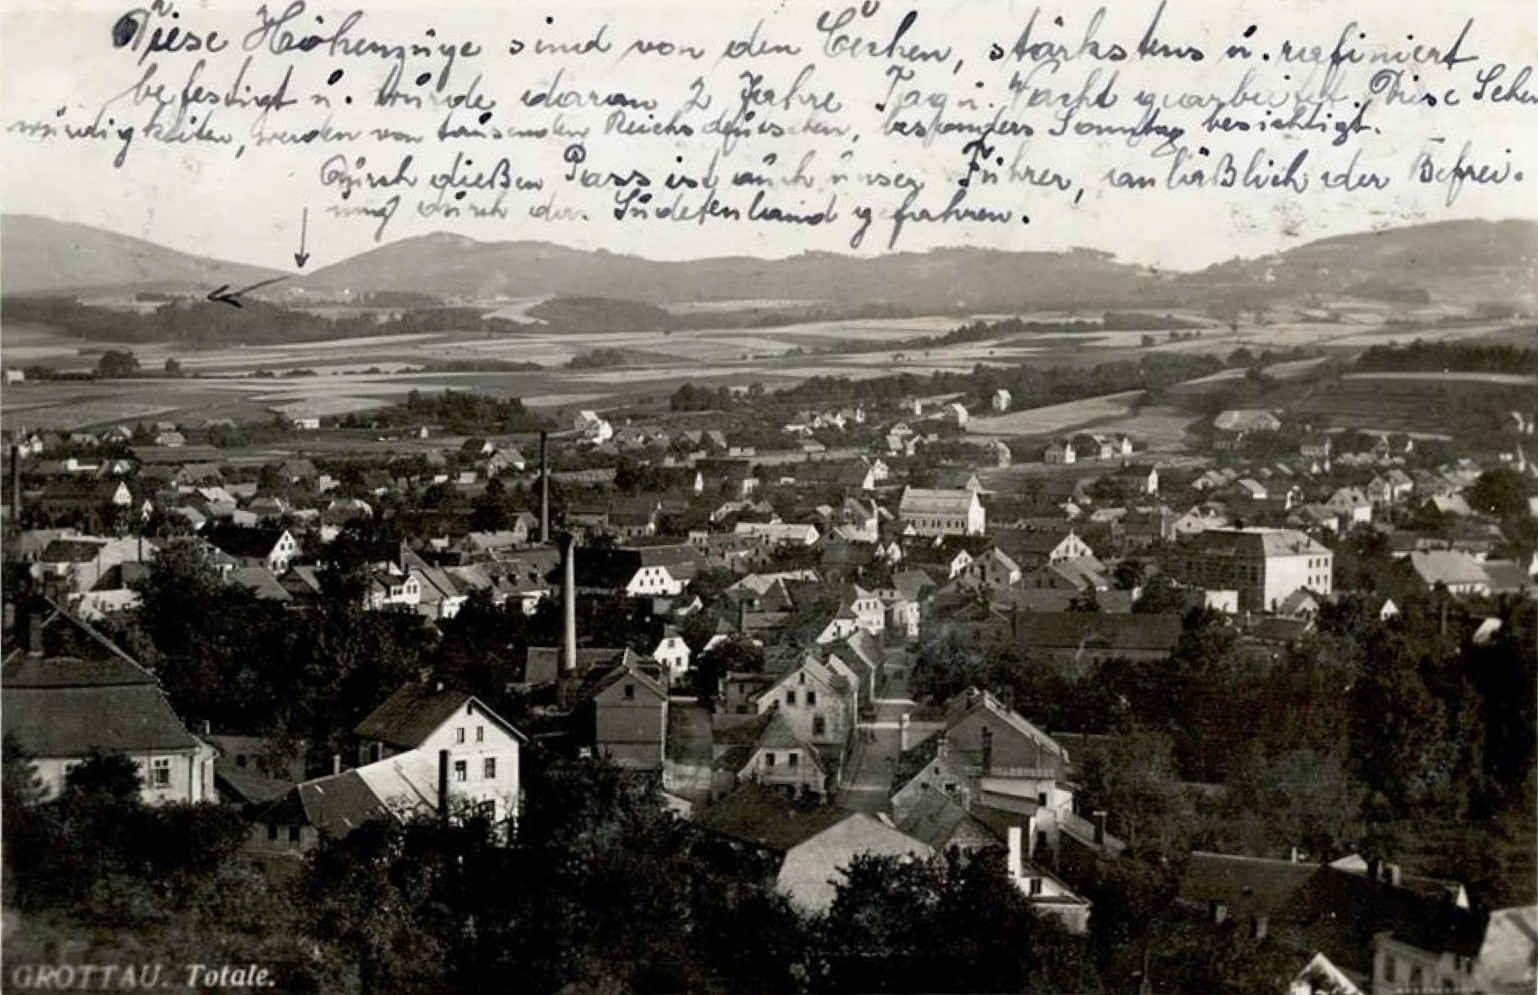 Diese Höhenzüge sind von den Čechen, stärkstens u. rafiniert
befestigt u. wurde daran 2 Jahre Tag u. Nacht gearbeitet. Diese Sehen
würdigkeiten, werden von tausenden Reichsdeutschen, besonders Sonntag besichtigt.
Durch dießen Pass ist auch unser Führer, anläßlich der Befrei-
ung durch das Sudetenland gefahren.
GROTTAU. Totale.